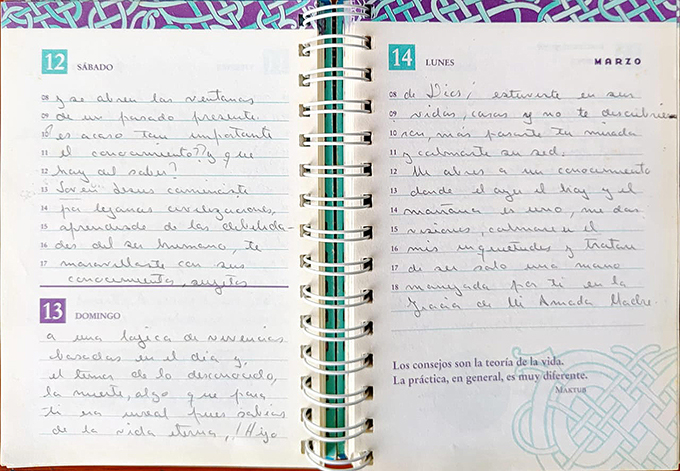 12 SÁBADO
08 y se abren las ventanas
09 de un pasado presente.
10 ¿es acaso tan importante
11 el conocimiento? y que
12 hay del saber?
13 Joven Jesus caminaste
14 por lejanas civilizaciones,
15 aprendiendo de las debilida-
16 des del ser humano, te
17 maravillaste con sus
conocimientos, sujetos
13 DOMINGO
a una logica de vivencias
basadas en el día y,
el tema de lo desconocido,
la muerte, algo que para
ti era irreal pues sabias
de la vida eterna, ¡Hijo
14 LUNES MARZO
08 de Dios! estuviste en sus
09 vidas, casas y no te descubrie-
10 ron, más posaste tu mirada
11 y calmaste su sed.
12 Me abres a un conocimiento
13 donde el ayer el hoy y el
14 mañana es uno, me das
15 visiones, calmare en él
16 mis inquietudes y tratare
17 de ser solo una mano
18 manejada por ti en la
Gracia de Mi Amada Madre.
Los consejos son la teoría de la vida.
La práctica, en general, es muy diferente.
MAKTUB